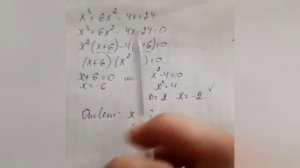 x³+6x²=4x+24
x³+6x²-4x-24=0
x²(x+6)-4 +6)=0
(x+6)(x² )=0
x+6=0 или x²-4=0
x=-6 x²=4
x=2 x=-2
Ответ: x